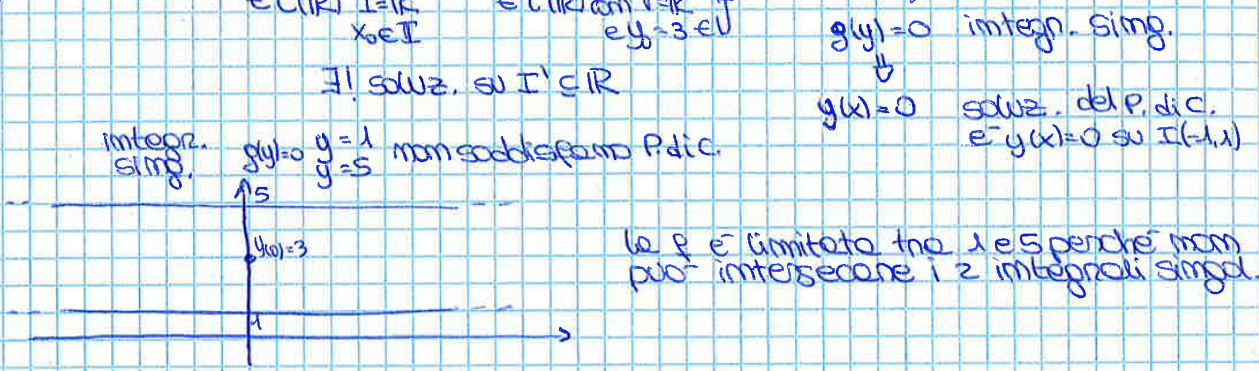 ∈ C(ℝ) I=ℝ
x₀∈I
∃! soluz. su I' ⊆ ℝ
integr. sing. g(y)=0 y=1 y=5 non soddisfano P.di C.
∈ C(ℝ) con J=ℝ
e y₀=3 ∈ J
g(y)=0 integr. sing.
⇓
y(x)=0 soluz. del P. di C.
è y(x)=0 su I(-1,1)
5
y(0)=3
1
la f è limitata tra 1 e 5 perché non
può intersecare i 2 integrali singol